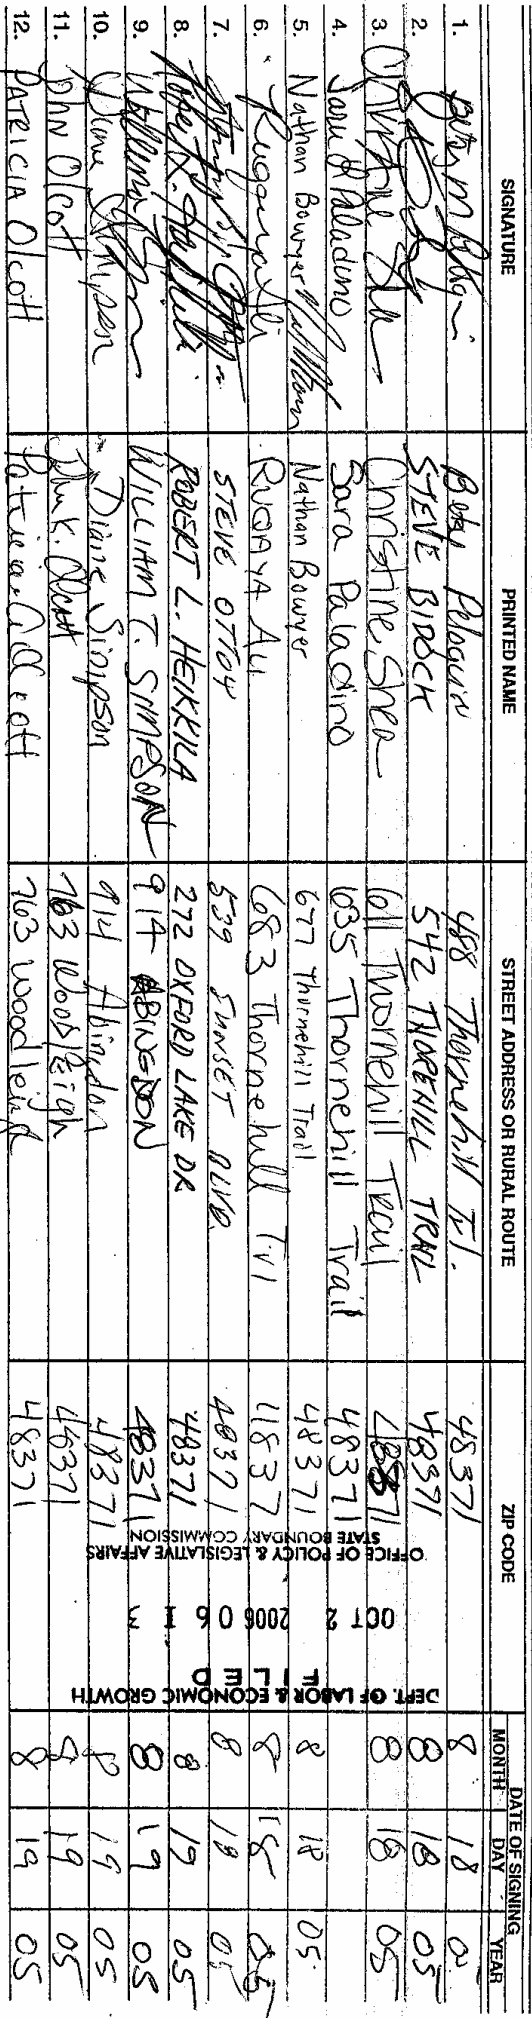 SIGNATURE PRINTED NAME STREET ADDRESS OR RURAL ROUTE ZIP CODE DATE OF SIGNING
MONTH DAY YEAR
1. Betsy Peloquin 488 Thornehill Trl. 48371 8 18 0
2. STEVE BIDOCK 542 THOREHILL TRAIL 48371 8 18 05
3. Christine Shea Christine Shea 611 Thornehill Trail 48371 8 18 05
4. Sara P Paladino Sara Paladino 635 Thornehill Trail 48371
5. Nathan Bowyer Nathan Bowyer 677 Thornehill Trail 48371 8 18 05
6. RUQAYA Ali 683 Thornehill Trl 4837 8 18 05
7. STEVE OTTOY 539 SUNSET BLVD. 48371 8 18 05
8. Robert L. Heikkila ROBERT L. HEIKKILA 272 OXFORD LAKE DR 48371 8 19 05
9. William Simpson WILLIAM T. SIMPSON 914 ABINGDON 48371 8 19 05
10. Diane Simpson Diane Simpson 914 Abingdon 48371 8 19 05
11. John Olcott John K. Olcott 763 Woodleigh 48371 8 19 05
12. PATRICIA Olcott Patricia Olcott 763 Woodleigh 48371 8 19 05
DEPT. OF LABOR & ECONOMIC GROWTH
FILED
OCT 2 2006
OFFICE OF POLICY & LEGISLATIVE AFFAIRS
STATE BOUNDARY COMMISSION